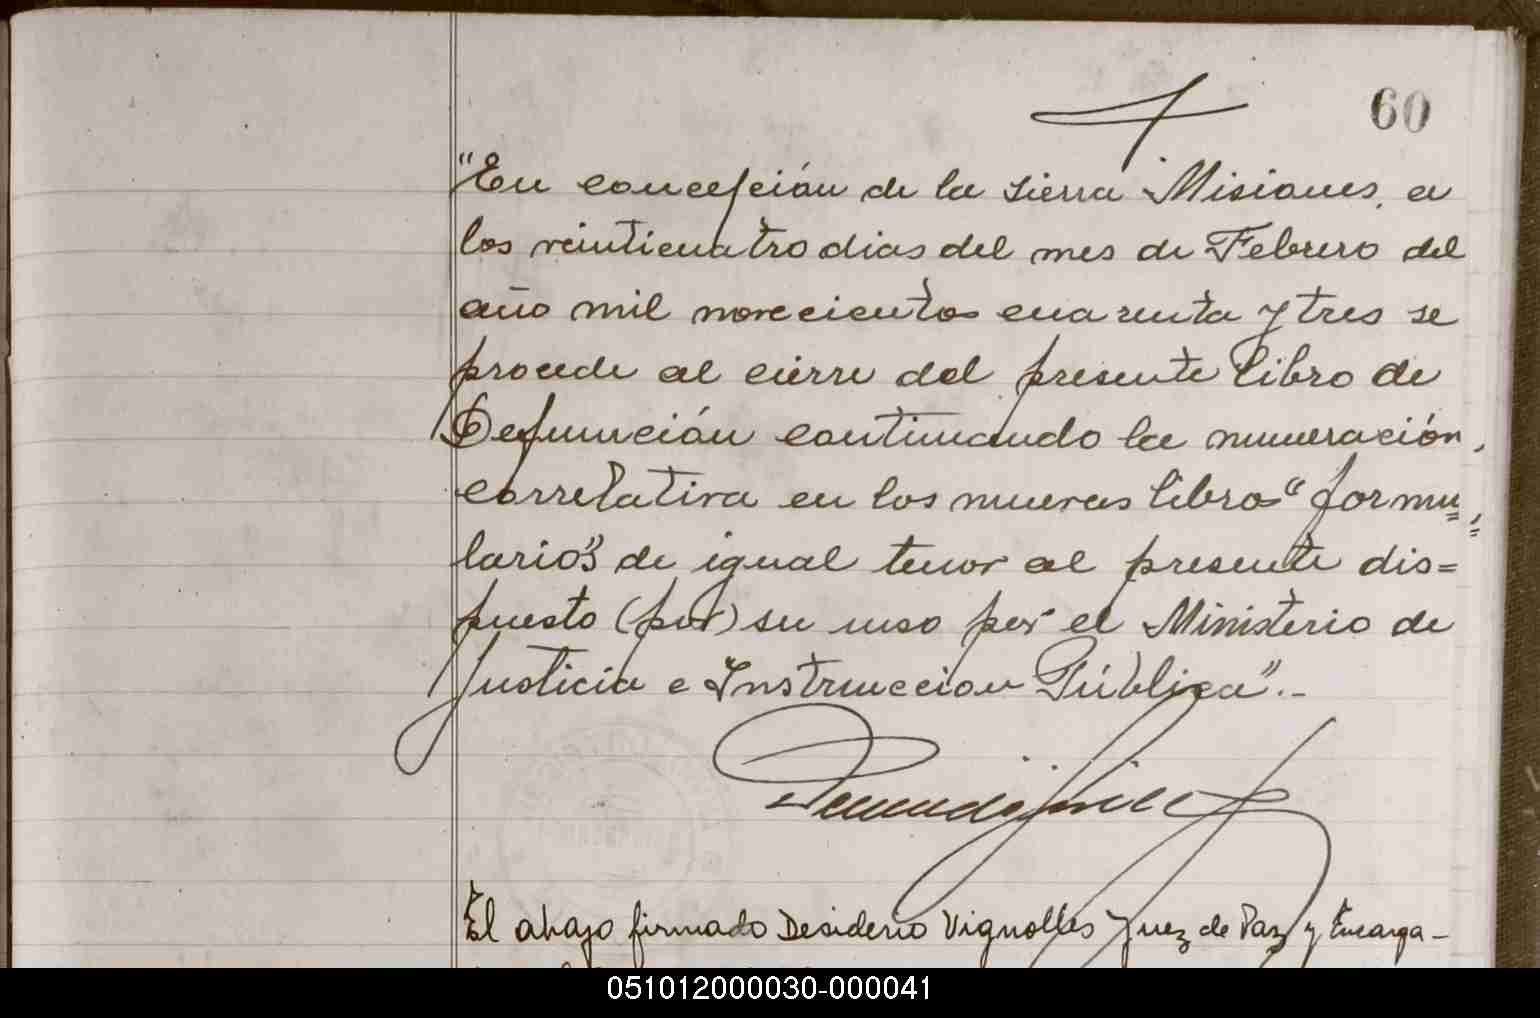 60
"En concepción de la sierra Misiones, a
los veinticuatro dias del mes de Febrero del
año mil novecientos cuarenta y tres se
procede al cierre del presente libro de
Defunción continuando la numeración
correlativa en los nuevos libros "formu=
larios" de igual tenor al presente dis=
puesto (por) su uso por el Ministerio de
Justicia e Instruccion Pública".-
El abajo firmado Desiderio Vignolles Juez de Paz y Encarga-
051012000030-000041